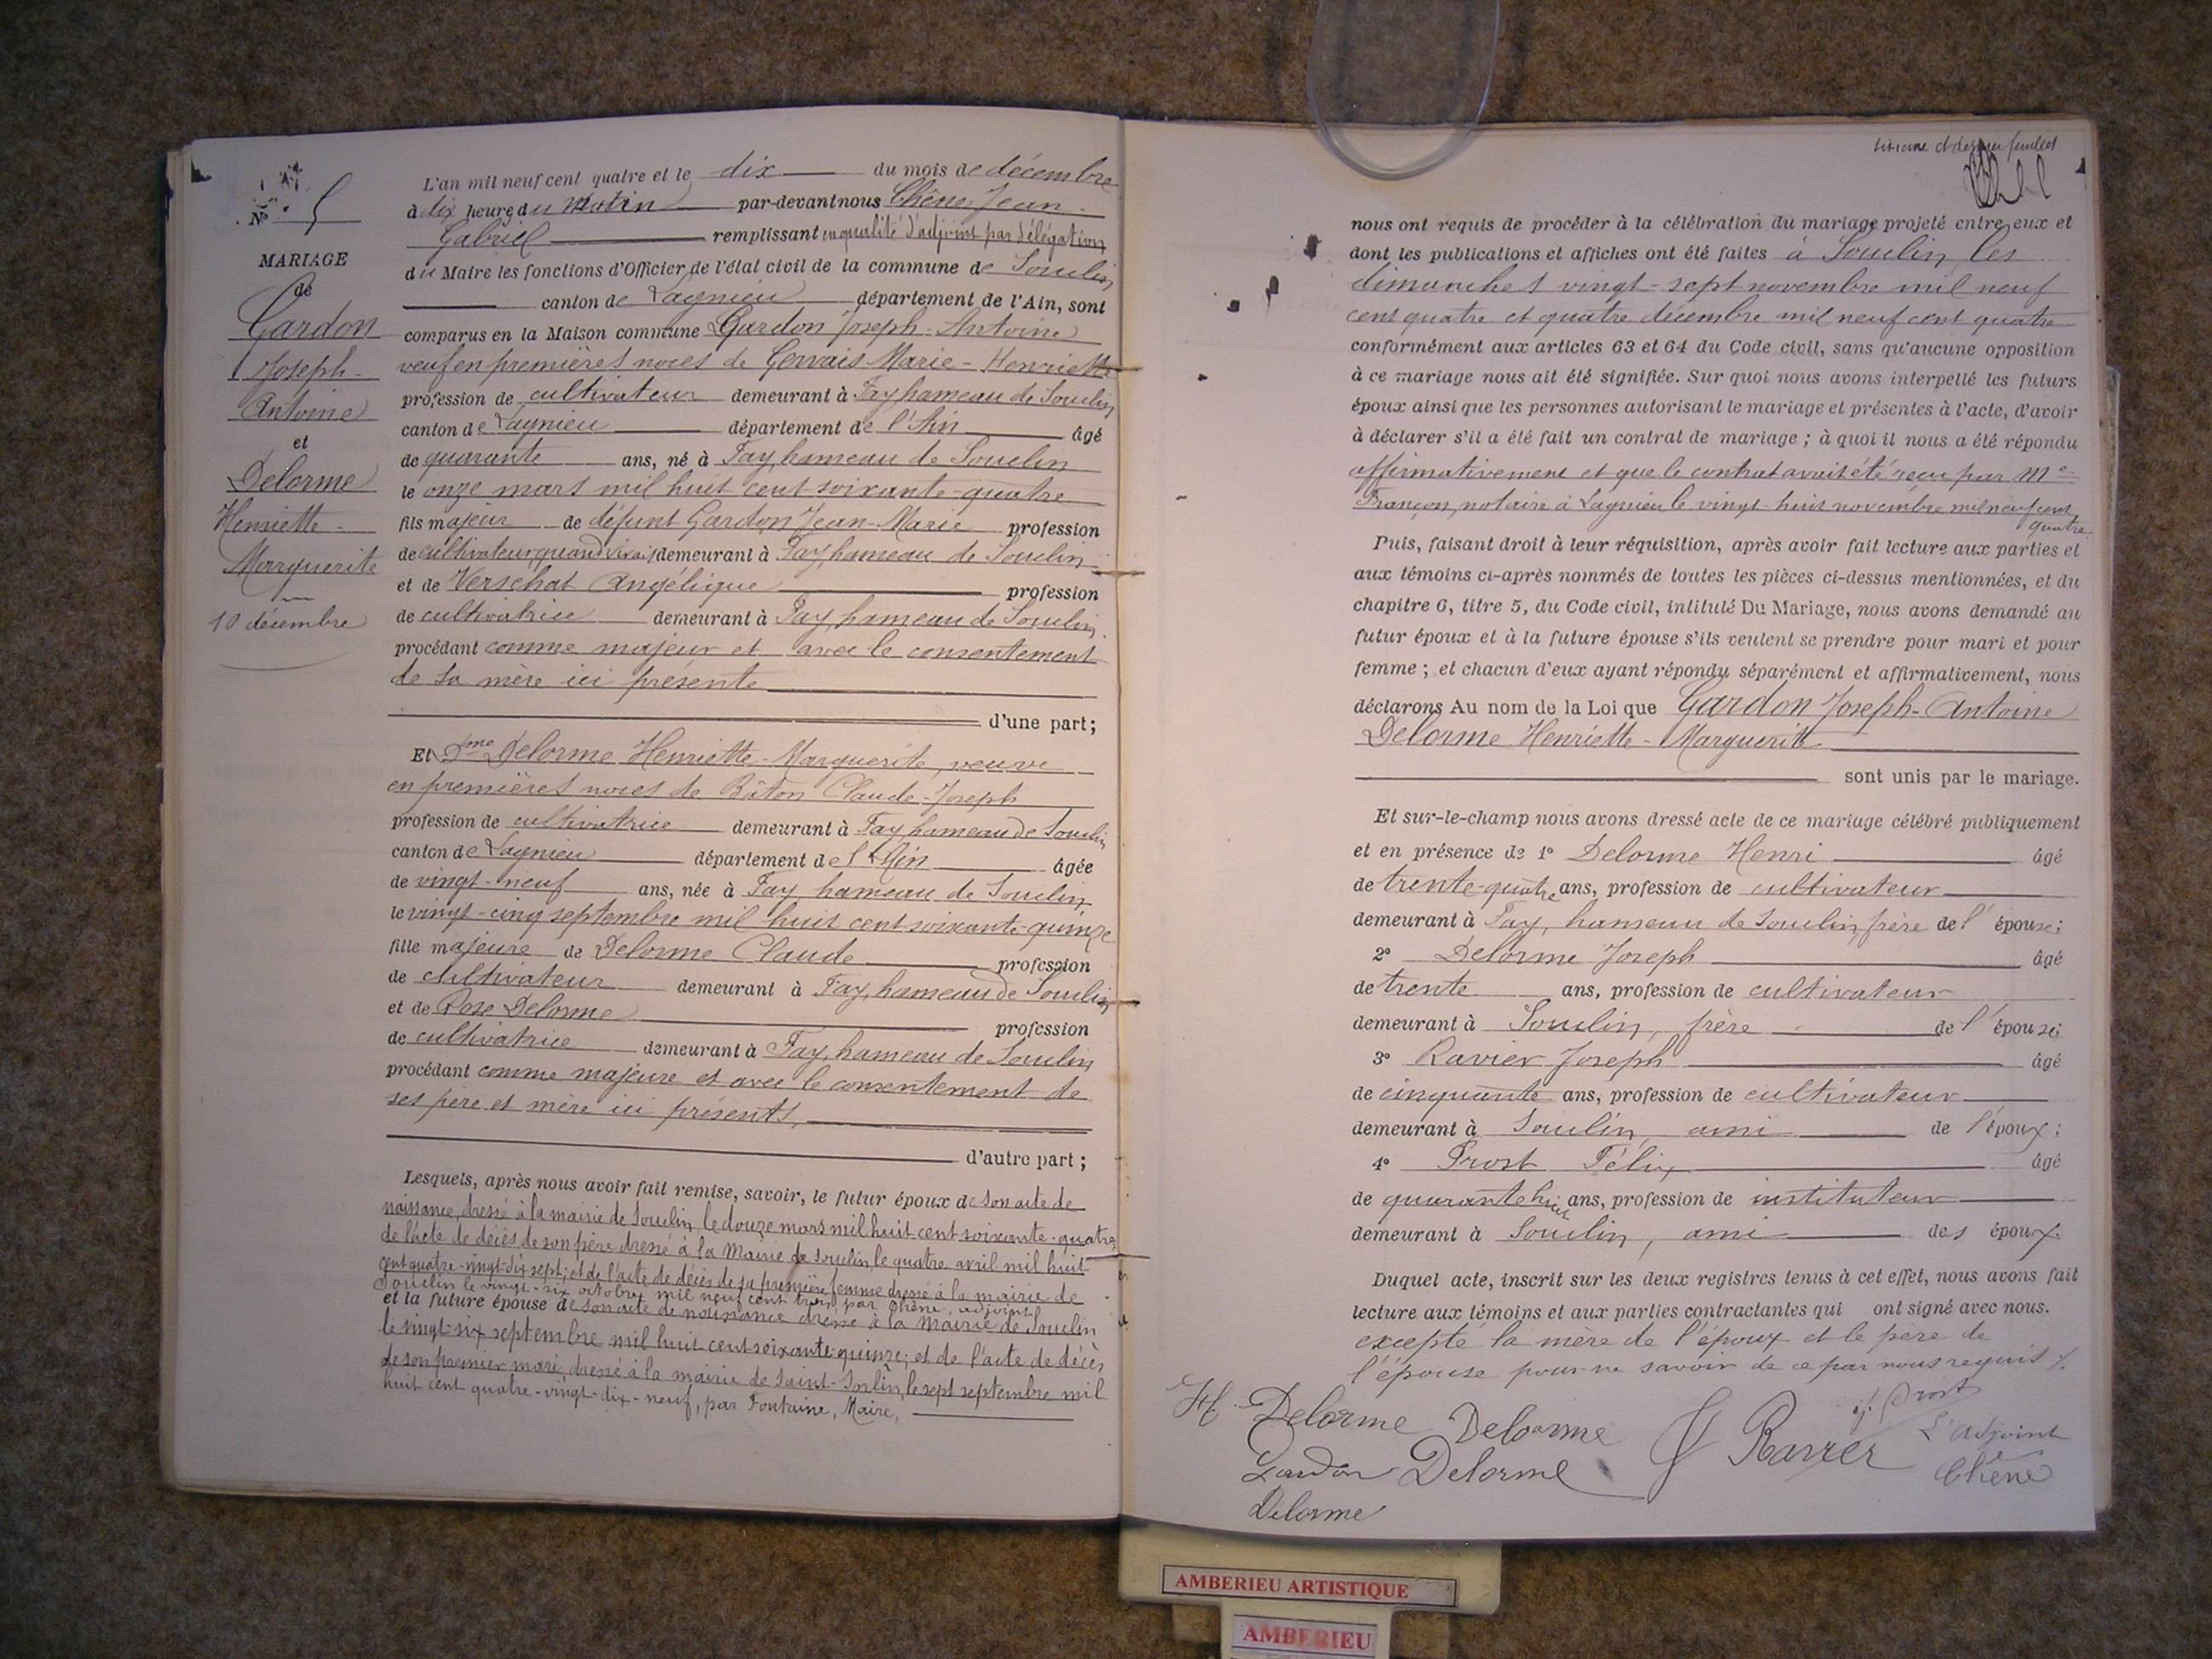 N° 5
MARIAGE
de
Gardon
Joseph-
Antoine
et
Delorme
Henriette-
Marguerite
10 décembre
L'an mil neuf cent quatre et le dix du mois de décembre
à dix heures du matin par-devant nous Chêne Jean
Gabriel remplissant en qualité d'adjoint par délégation
du Maire les fonctions d'Officier de l'état civil de la commune de Souclin
canton de Lagnieu département de l'Ain, sont
comparus en la Maison commune Gardon Joseph-Antoine
veuf en premières noces de Gervais Marie-Henriette
profession de cultivateur demeurant à Fay, hameau de Souclin
canton de Lagnieu département de l'Ain âgé
de quarante ans, né à Fay, hameau de Souclin
le onze mars mil huit cent soixante-quatre
fils majeur de défunt Gardon Jean-Marie profession
de cultivateur quand vivait demeurant à Fay, hameau de Souclin
et de Verschat Angélique profession
de cultivatrice demeurant à Fay, hameau de Souclin
procédant comme majeur et avec le consentement
de sa mère ici présente
d'une part;
Et Dme Delorme Henriette-Marguerite, veuve
en premières noces de Bâton Claude-Joseph
profession de cultivatrice demeurant à Fay hameau de Souclin
canton de Lagnieu département de l'Ain âgée
de vingt-neuf ans, née à Fay, hameau de Souclin
le vingt-cinq septembre mil huit cent soixante-quinze
fille majeure de Delorme Claude profession
de cultivateur demeurant à Fay, hameau de Souclin
et de Rose Delorme profession
de cultivatrice demeurant à Fay, hameau de Souclin
procédant comme majeure et avec le consentement de
ses père et mère ici présents,
d'autre part;
Lesquels, après nous avoir fait remise, savoir, le futur époux de son acte de
naissance, dressé à la mairie de Souclin, le douze mars mil huit cent soixante-quatre
de l'acte de décès de son père dressé à la Mairie de Souclin, le quatre avril mil huit
cent quatre-vingt-dix sept; et de l'acte de décès de sa première femme dressé à la mairie de
Souclin le vingt-six octobre mil neuf cent trois, par Chêne, adjoint
et la future épouse de son acte de naissance dressé à la Mairie de Souclin
le vingt-six septembre mil huit cent soixante-quinze; et de l'acte de décès
de son premier mari, dressé à la mairie de Saint-Sorlin, le sept septembre mil
huit cent quatre-vingt-dix-neuf, par Fontaine, Maire,
sixième et dernier feuillet
nous ont requis de procéder à la célébration du mariage projeté entre eux et
dont les publications et affiches ont été faites à Souclin les
dimanches vingt-sept novembre mil neuf
cent quatre et quatre décembre mil neuf cent quatre
conformément aux articles 63 et 64 du Code civil, sans qu'aucune opposition
à ce mariage nous ait été signifiée. Sur quoi nous avons interpellé les futurs
époux ainsi que les personnes autorisant le mariage et présentes à l'acte, d'avoir
à déclarer s'il a été fait un contrat de mariage; à quoi il nous a été répondu
affirmativement et que le contrat avait été reçu par Me
Françon, notaire à Lagnieu le vingt-huit novembre mil neuf cent
quatre
Puis, faisant droit à leur réquisition, après avoir fait lecture aux parties et
aux témoins ci-après nommés de toutes les pièces ci-dessus mentionnées, et du
chapitre 6, titre 5, du Code civil, intitulé Du Mariage, nous avons demandé au
futur époux et à la future épouse s'ils veulent se prendre pour mari et pour
femme; et chacun d'eux ayant répondu séparément et affirmativement, nous
déclarons Au nom de la Loi que Gardon Joseph-Antoine
Delorme Henriette-Marguerite
sont unis par le mariage.
Et sur-le-champ nous avons dressé acte de ce mariage célébré publiquement
et en présence de 1° Delorme Henri âgé
de trente-quatre ans, profession de cultivateur
demeurant à Fay, hameau de Souclin, frère de l'épouse;
2° Delorme Joseph âgé
de trente ans, profession de cultivateur
demeurant à Souclin, frère de l'épouse;
3° Ravier Joseph âgé
de cinquante ans, profession de cultivateur
demeurant à Souclin, ami de l'époux;
4° Prost Félix âgé
de quarante huit ans, profession de instituteur
demeurant à Souclin, ami des époux.
Duquel acte, inscrit sur les deux registres tenus à cet effet, nous avons fait
lecture aux témoins et aux parties contractantes qui ont signé avec nous.
excepté la mère de l'époux et le père de
l'épouse pour ne savoir de ce par nous requis
H Delorme Delorme J Ravier Prost
Gardon Delorme L'adjoint
Delorme Chêne
AMBERIEU ARTISTIQUE
AMBERIEU